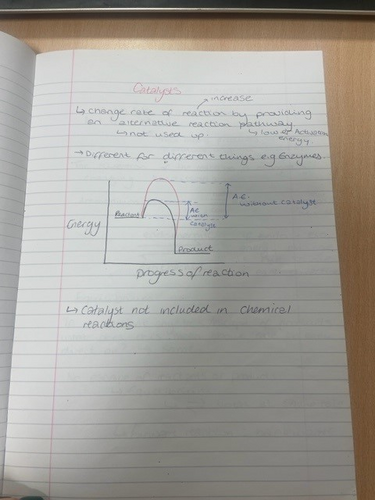 Catalysts
increase
↳ change rate of reaction by providing
an alternative reaction pathway
↳ not used up.
↳ lower Activation
energy.
→ Different for different things e.g Enzymes.
Energy
Reactant
Product
A.E
with
catalyst
A.E.
without catalyst
Progress of reaction
↳ Catalyst not included in chemical
reactions